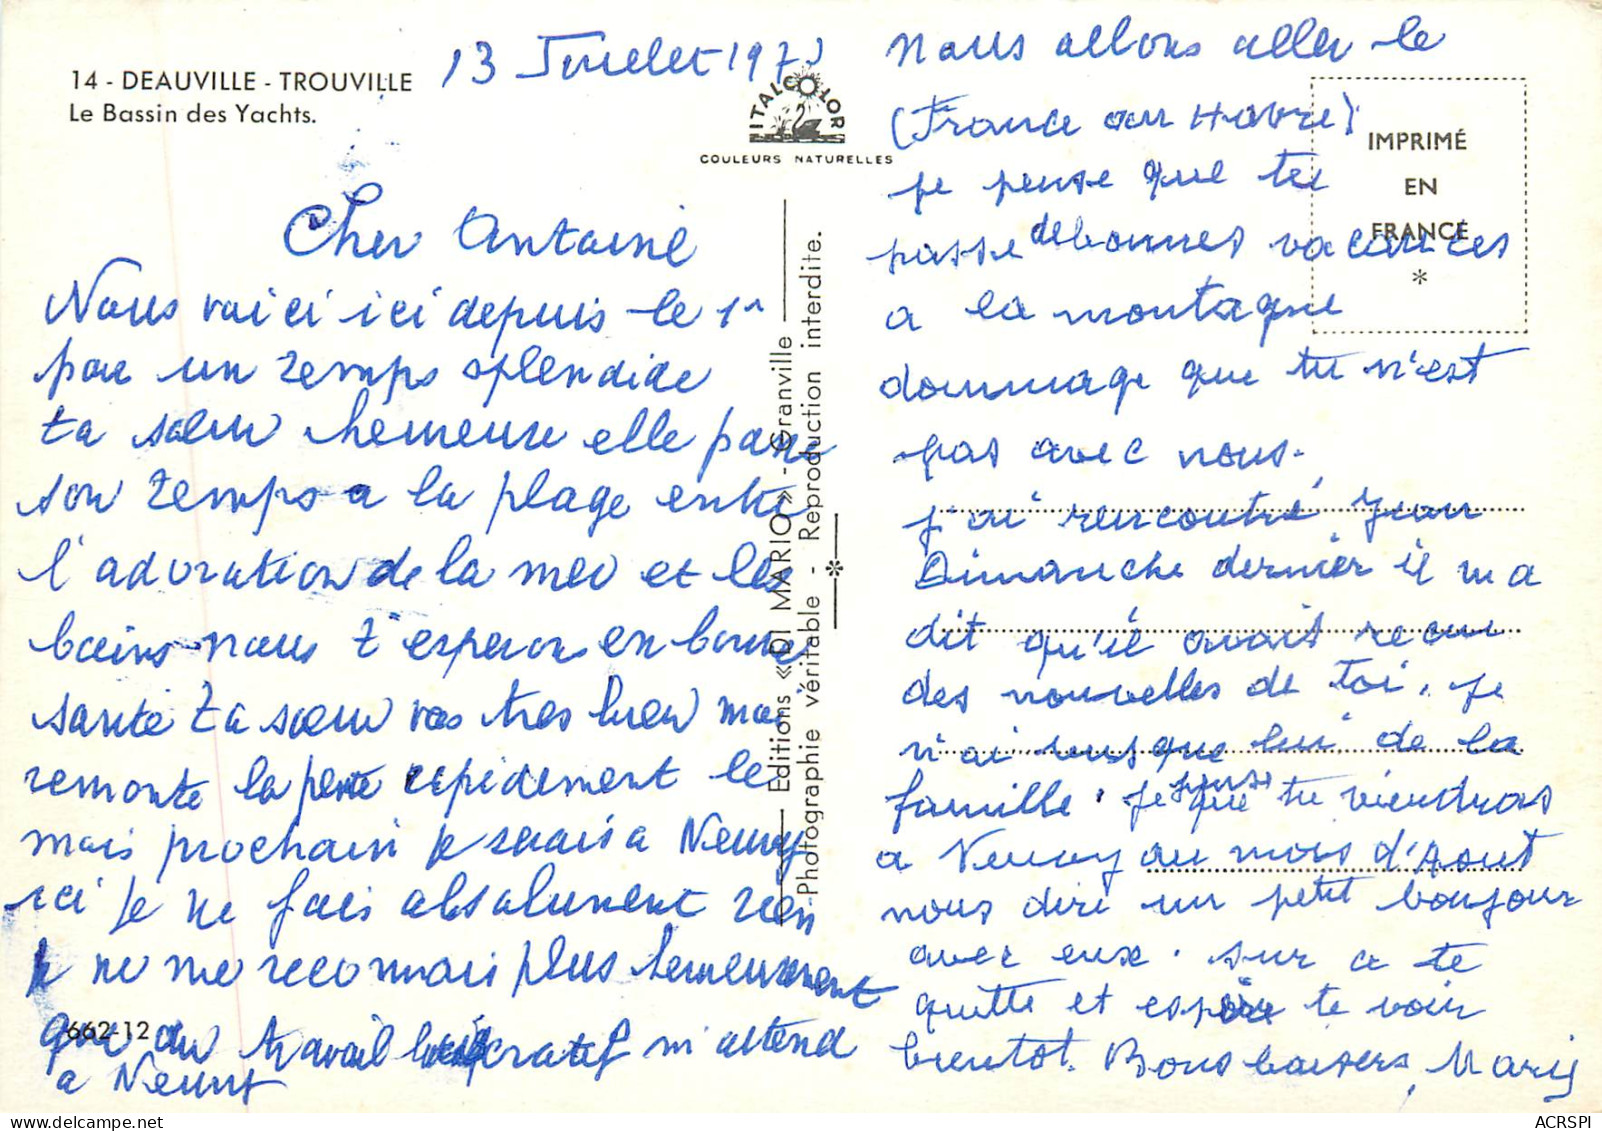 14 - DEAUVILLE - TROUVILLE
Le Bassin des Yachts.
13 Juillet 197
ITALCOLOR
COULEURS NATURELLES
Cher Antoine
Nous voici ici depuis le 1r
par un temps splendide
ta sœur heureuse elle passe
son temps a la plage entre
l'adoration de la mer et les
bains nous t'esperons en bonne
santé ta sœur vas tres bien moi
remonte la pente rapidement le
mois prochain je serais a Neuvy
ici je ne fais absolument rien
je ne me reconnais plus heureusement
que du travail m'attend
a Neuvy
662-12
Editions «DI MARIO» - Granville
Photographie véritable - Reproduction interdite.
*
IMPRIMÉ
EN
FRANCE
*
nous allons aller le
(France au Havre)
je pense que tu
passe de bonnes vacances
a la montagne
dommage que tu n'est
pas avec nous.
j'ai rencontré Jean
Dimanche dernier il m a
dit qu'il avait recu
des nouvelles de toi. je
n'ai vus que lui de la
famille. je pense que tu viendras
a Neuvy au mois d'Aout
nous dire un petit bonjour
avec eux. sur ce te
quitte et espère te voir
bientot. Bons baisers, Mary
ACRSPI